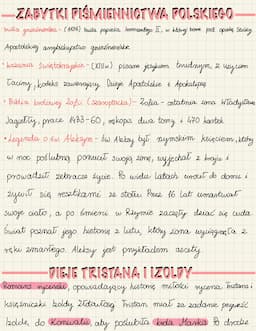 ZABYTKI PIŚMIENNICTWA POLSKIEGO
bulla gnieźnieńska - (1136) bulla papieża Innocentego II, w której bierze pod opiekę Stolicy
Apostolskiej arcybiskupstwo gnieźnieńskie
• kazania świętokrzyskie - (XIIIw) pisane językiem trudnym, z użyciem
łaciny, kodeks zawierający Dzieje Apostolskie i Apokalipsę
• Biblia królowej Zofii (szaroszpatacka) - Zofia - ostatnia żona Władysława
Jagiełły, prace 1433-60, rękopis dwa tomy, 470 kartek
• Legenda o św. Aleksym - św. Aleksy był rzymskim księciem, który
w noc poślubną porzucił swoją żonę, wyjechał z kraju i
prowadził żebracze życie. Po wielu latach wrócił do domu i
żywił się resztkami ze stołu. Przez 16 lat umartwiał
swoje ciało, a po śmierci w Rzymie zaczęły dziać się cuda.
Świat poznał jego historię z listu, który żona wyciągnęła z
ręki zmarłego. Aleksy jest przykładem ascety.
DZIEJE TRISTANA I IZOLDY
Romans rycerski, opowiadający historię miłości rycerza Tristana i
księżniczki Izoldy Złotowłosej. Tristan miał za zadanie przywieźć
Izoldę do Kornwalii, aby poślubiła króla Marka. Po drodze